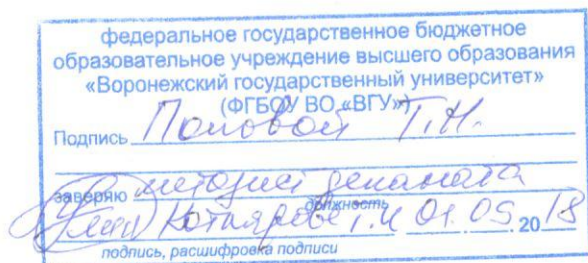 федеральное государственное бюджетное
образовательное учреждение высшего образования
«Воронежский государственный университет»
(ФГБОУ ВО «ВГУ»)
Подпись Поповой Т.Н.
заверяю методист деканата
должность
01.05 2018
подпись, расшифровка подписи